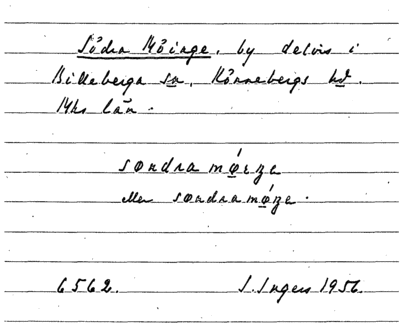 Södra Möinge, by delvis i
Billeberga sn, Rönnebergs hd.
Mhs län.
søndra mǿɪŋe
eller søndra mǿŋe.
6562. I. Ingers 1956